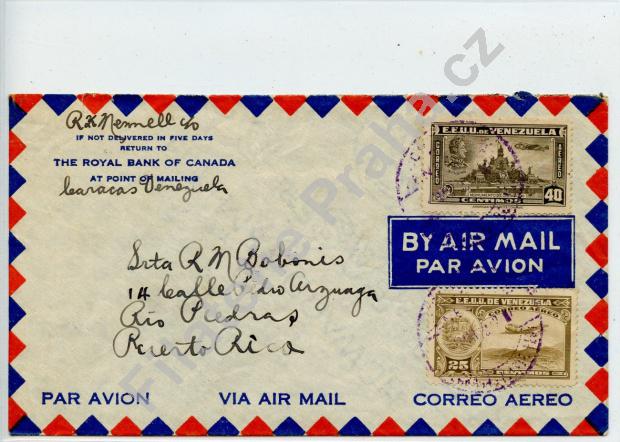 R H Nennell c/o
IF NOT DELIVERED IN FIVE DAYS
RETURN TO
THE ROYAL BANK OF CANADA
AT POINT OF MAILING
Caracas Venezuela
E.E.U.U. DE VENEZUELA
CORREO
AEREO
CENTIMOS
40
BY AIR MAIL
PAR AVION
Srta R M Bobonis
14 Calle Piro Arzuaga
Rio Piedras,
Puerto Rico
E.E.U.U. DE VENEZUELA
CORREO AEREO
25
CENTIMOS
PAR AVION
VIA AIR MAIL
CORREO AEREO
Filatelie Praha.cz